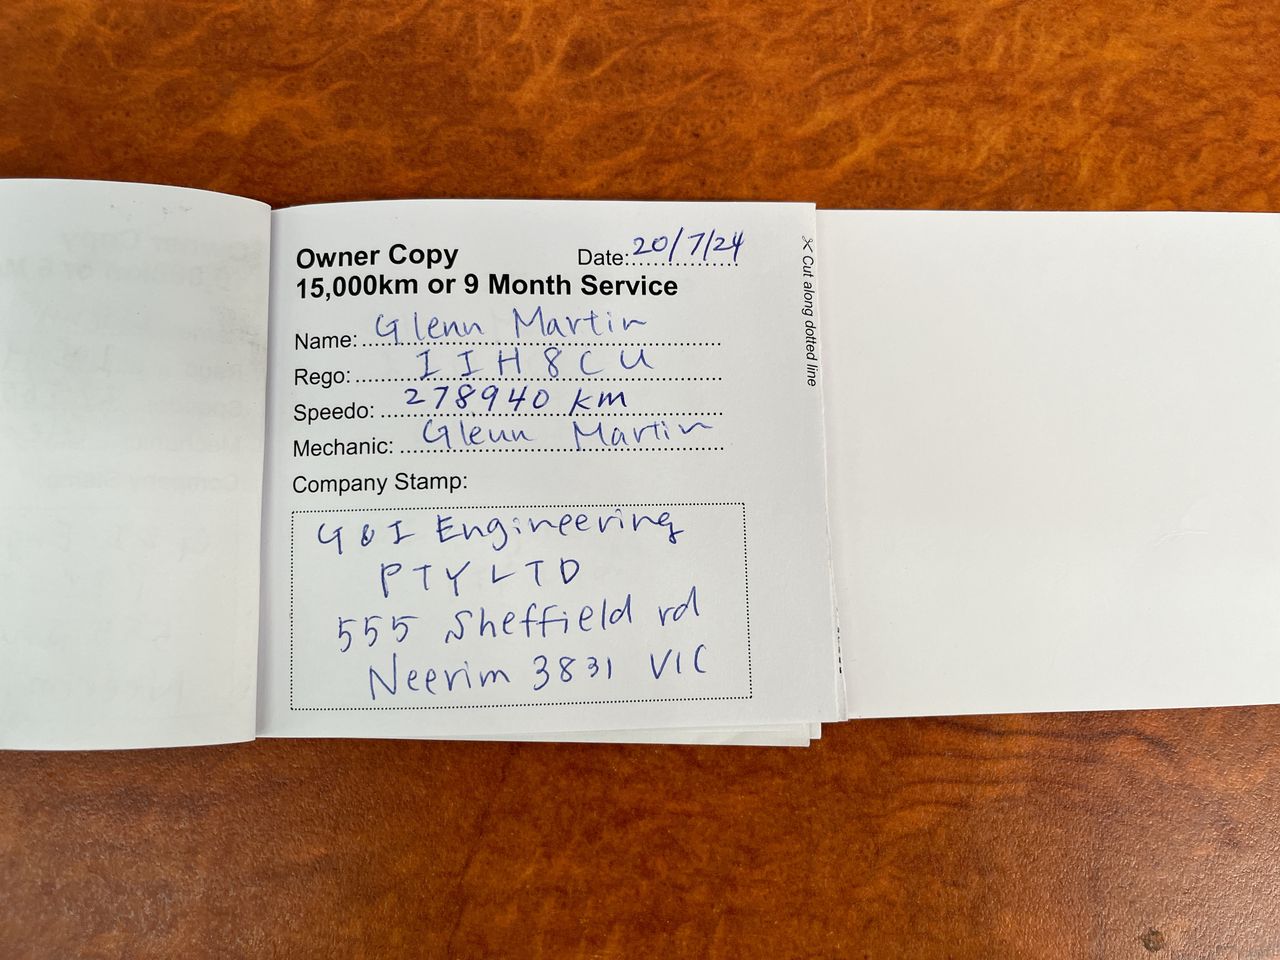 Owner Copy
Date: 20/7/24
15,000km or 9 Month Service
Name: Glenn Martin
Rego: IIH8CU
Speedo: 278940 km
Mechanic: Glenn Martin
Company Stamp:
G & I Engineering
PTY LTD
555 Sheffield rd
Neerim 3831 VIC
Cut along dotted line